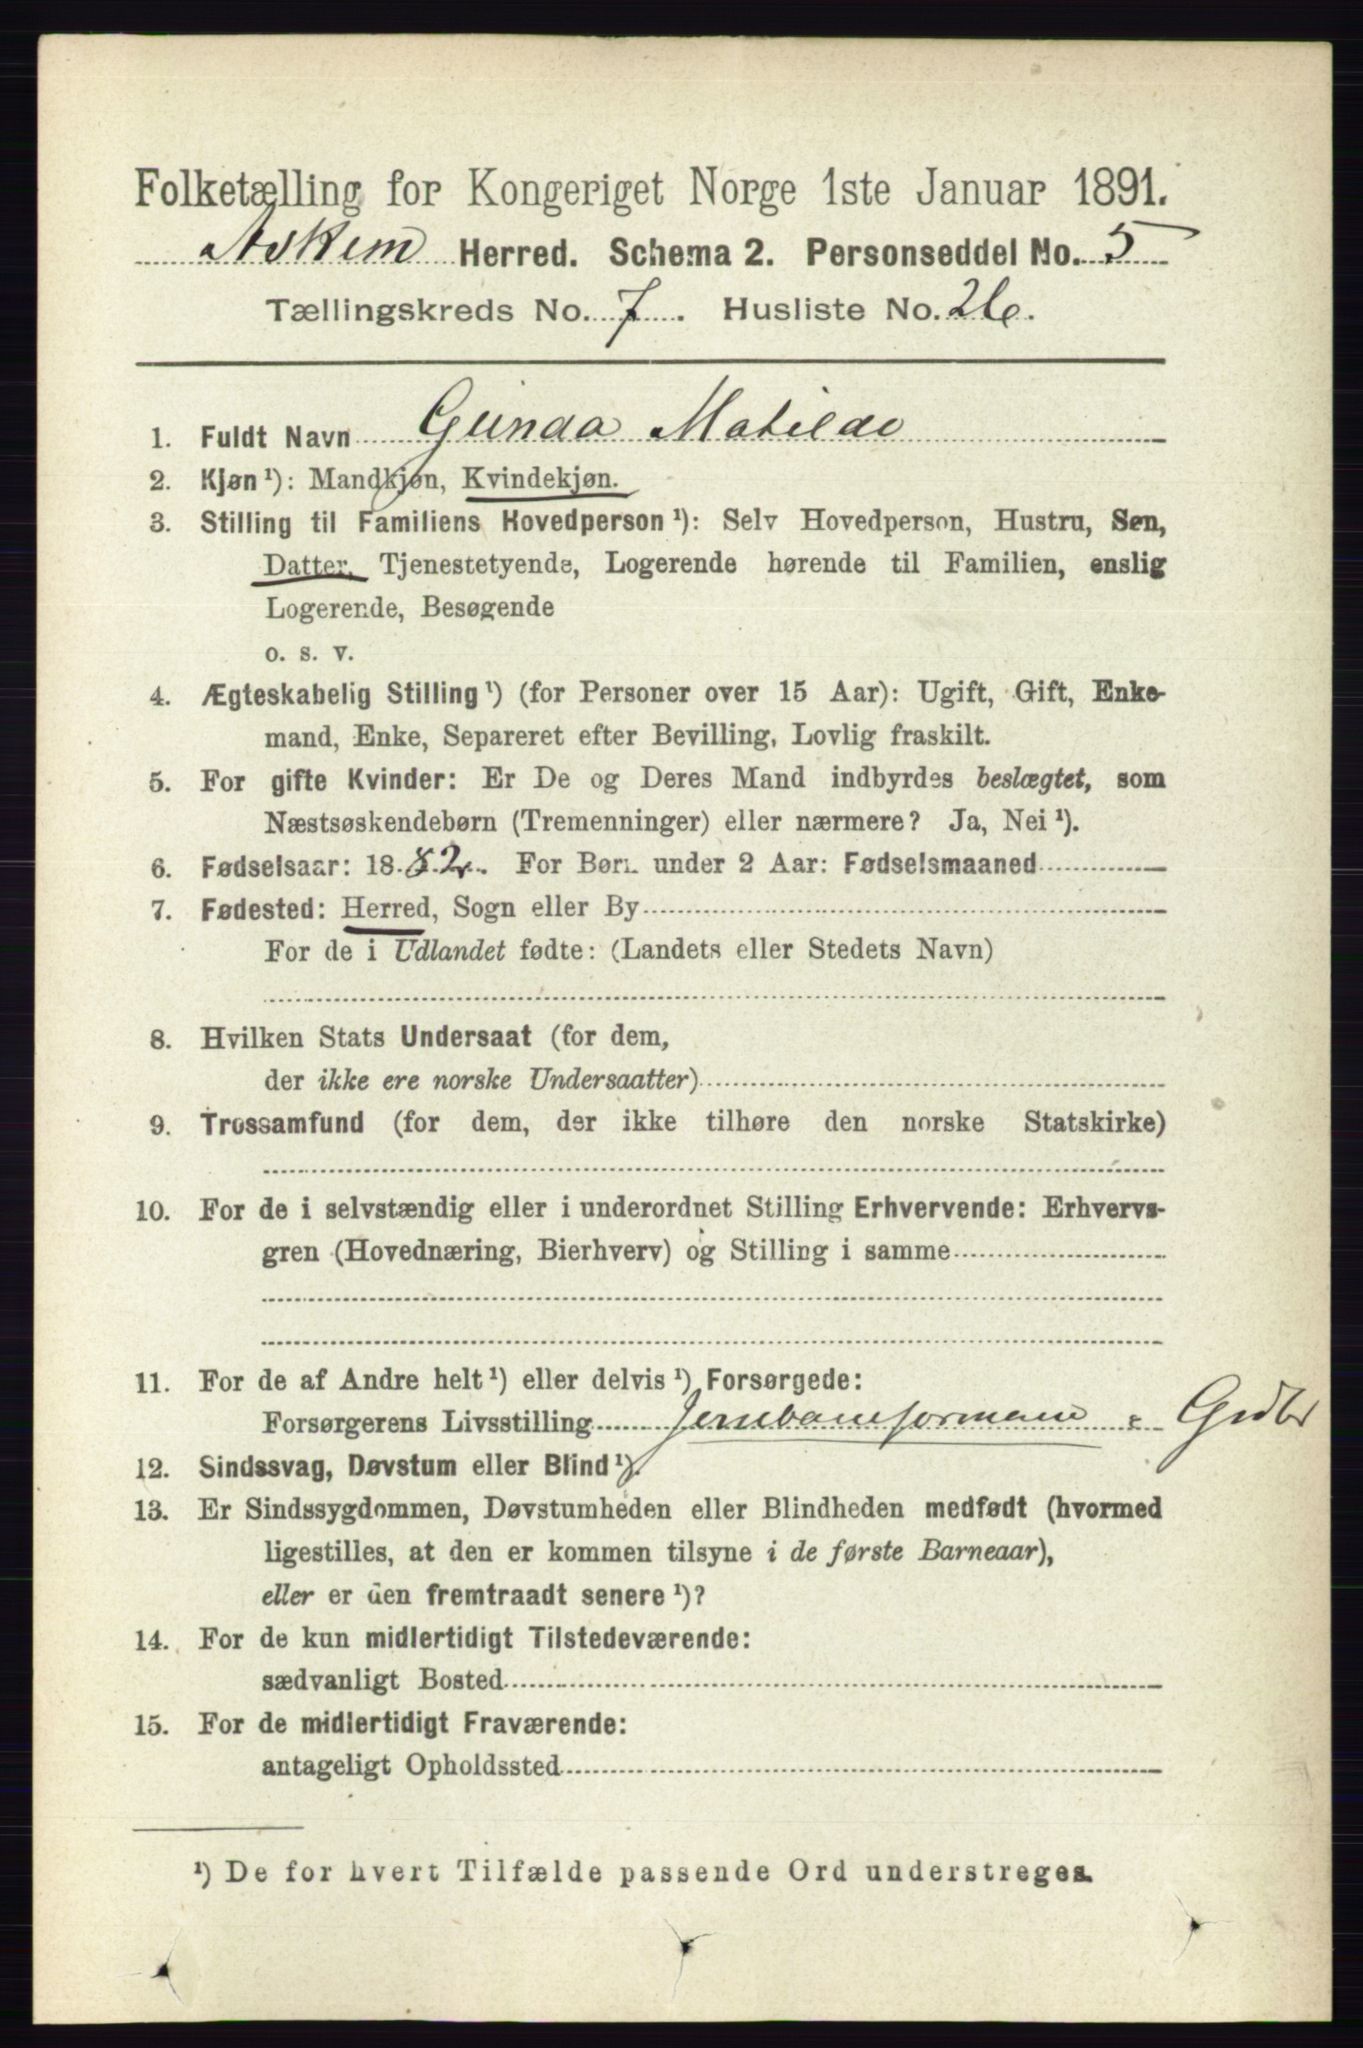 Folketælling for Kongeriget Norge 1ste Januar 1891.
Askim Herred. Schema 2. Personseddel No. 5
Tællingskreds No. 7. Husliste No. 26.
1. Fuldt Navn Gunda Matilde
2. Kjøn ¹): Mandkjøn, Kvindekjøn.
3. Stilling til Familiens Hovedperson ¹): Selv Hovedperson, Hustru, Søn,
Datter, Tjenestetyende, Logerende hørende til Familien, enslig
Logerende, Besøgende
o. s. v.
4. Ægteskabelig Stilling ¹) (for Personer over 15 Aar): Ugift, Gift, Enke-
mand, Enke, Separeret efter Bevilling, Lovlig fraskilt.
5. For gifte Kvinder: Er De og Deres Mand indbyrdes beslægtet, som
Næstsøskendebørn (Tremenninger) eller nærmere? Ja, Nei ¹).
6. Fødselsaar: 1882. For Børn under 2 Aar: Fødselsmaaned
7. Fødested: Herred, Sogn eller By
For de i Udlandet fødte: (Landets eller Stedets Navn)
8. Hvilken Stats Undersaat (for dem,
der ikke ere norske Undersaatter)
9. Trossamfund (for dem, der ikke tilhøre den norske Statskirke)
10. For de i selvstændig eller i underordnet Stilling Erhvervende: Erhvervs-
gren (Hovednæring, Bierhverv) og Stilling i samme
11. For de af Andre helt ¹) eller delvis ¹) Forsørgede:
Forsørgerens Livsstilling Jernbaneformann
12. Sindssvag, Døvstum eller Blind ¹).
13. Er Sindssygdommen, Døvstumheden eller Blindheden medfødt (hvormed
ligestilles, at den er kommen tilsyne i de første Barneaar),
eller er den fremtraadt senere ¹)?
14. For de kun midlertidigt Tilstedeværende:
sædvanligt Bosted
15. For de midlertidigt Fraværende:
antageligt Opholdssted
¹) De for hvert Tilfælde passende Ord understreges.